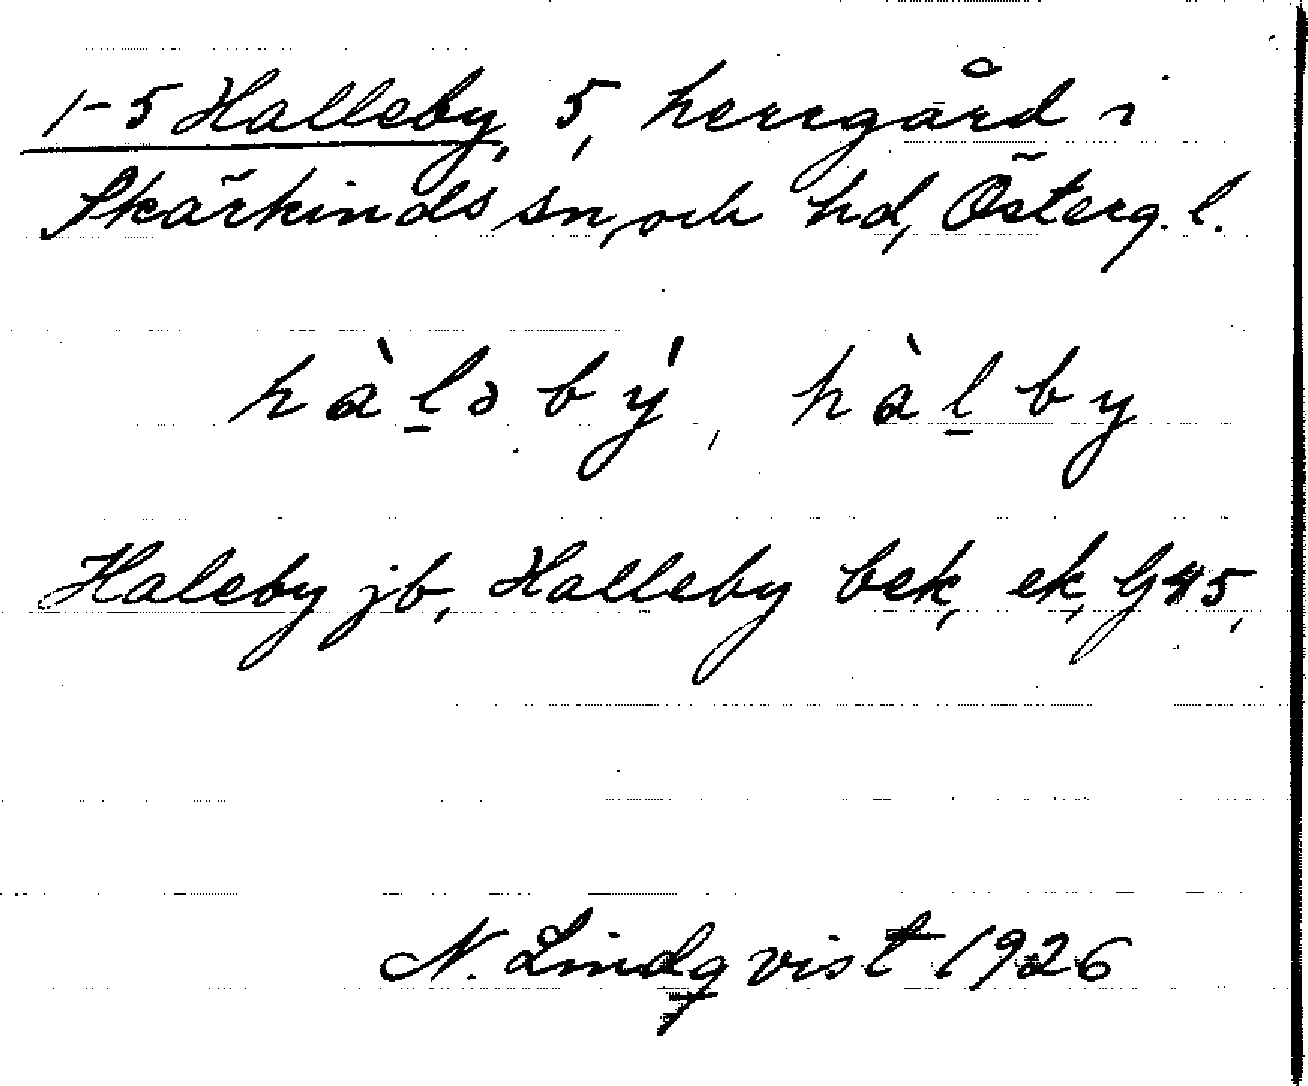 1-5 Halleby, 5, herrgård i
Skärkinds sn, och hd, Österg. l.
hàl̲əbý, hàl̲by
Haleby jb, Halleby bek, ek, G45,
N. Lindqvist 1926